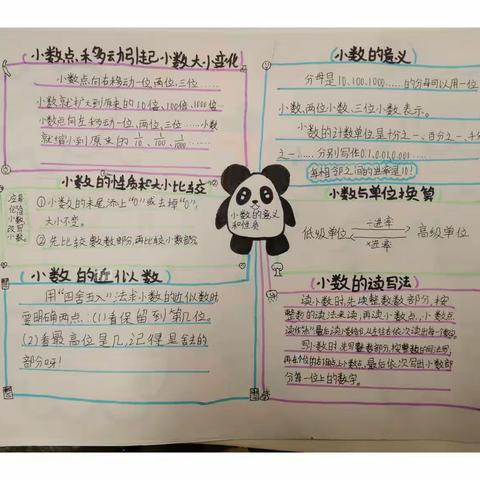 小数点移动引起小数大小变化
小数点向右移动一位、两位、三位……
小数就扩大到原来的10倍、100倍、1000倍
小数点向左移动一位、两位、三位……小数
就缩小到原来的1/10、1/100、1/1000……
小数的性质和大小比较
应用
化简
小数
改写
小数。
①小数的末尾添上"0"或去掉"0",
大小不变。
②先比较整数部分,再比较小数部分
小数的近似数
用"四舍五入"法求小数的近似数时
要明确两点:(1)看保留到第几位。
(2)看最高位是几,记得是舍的
部分呀!
小数的意义
和性质
小数的意义
分母是10、100、1000……的分母可以用一位
小数、两位小数、三位小数表示。
小数的计数单位是十分之一、百分之一、千分
之一……分别写作0.1、0.01、0.001……
每相邻之间的进率是10!
小数与单位换算
÷进率
低级单位 高级单位
×进率
小数的读写法
读小数时,先读整数部分,按
整数的读法来读,再读小数点,小数点
读作"点",最后读小数部分,从左往右依次读出每一个数字。
写小数时,先写整数部分,按整数的写法写,
再在个位的右下角点上小数点,最后依次写出小数部
分每一位上的数字。